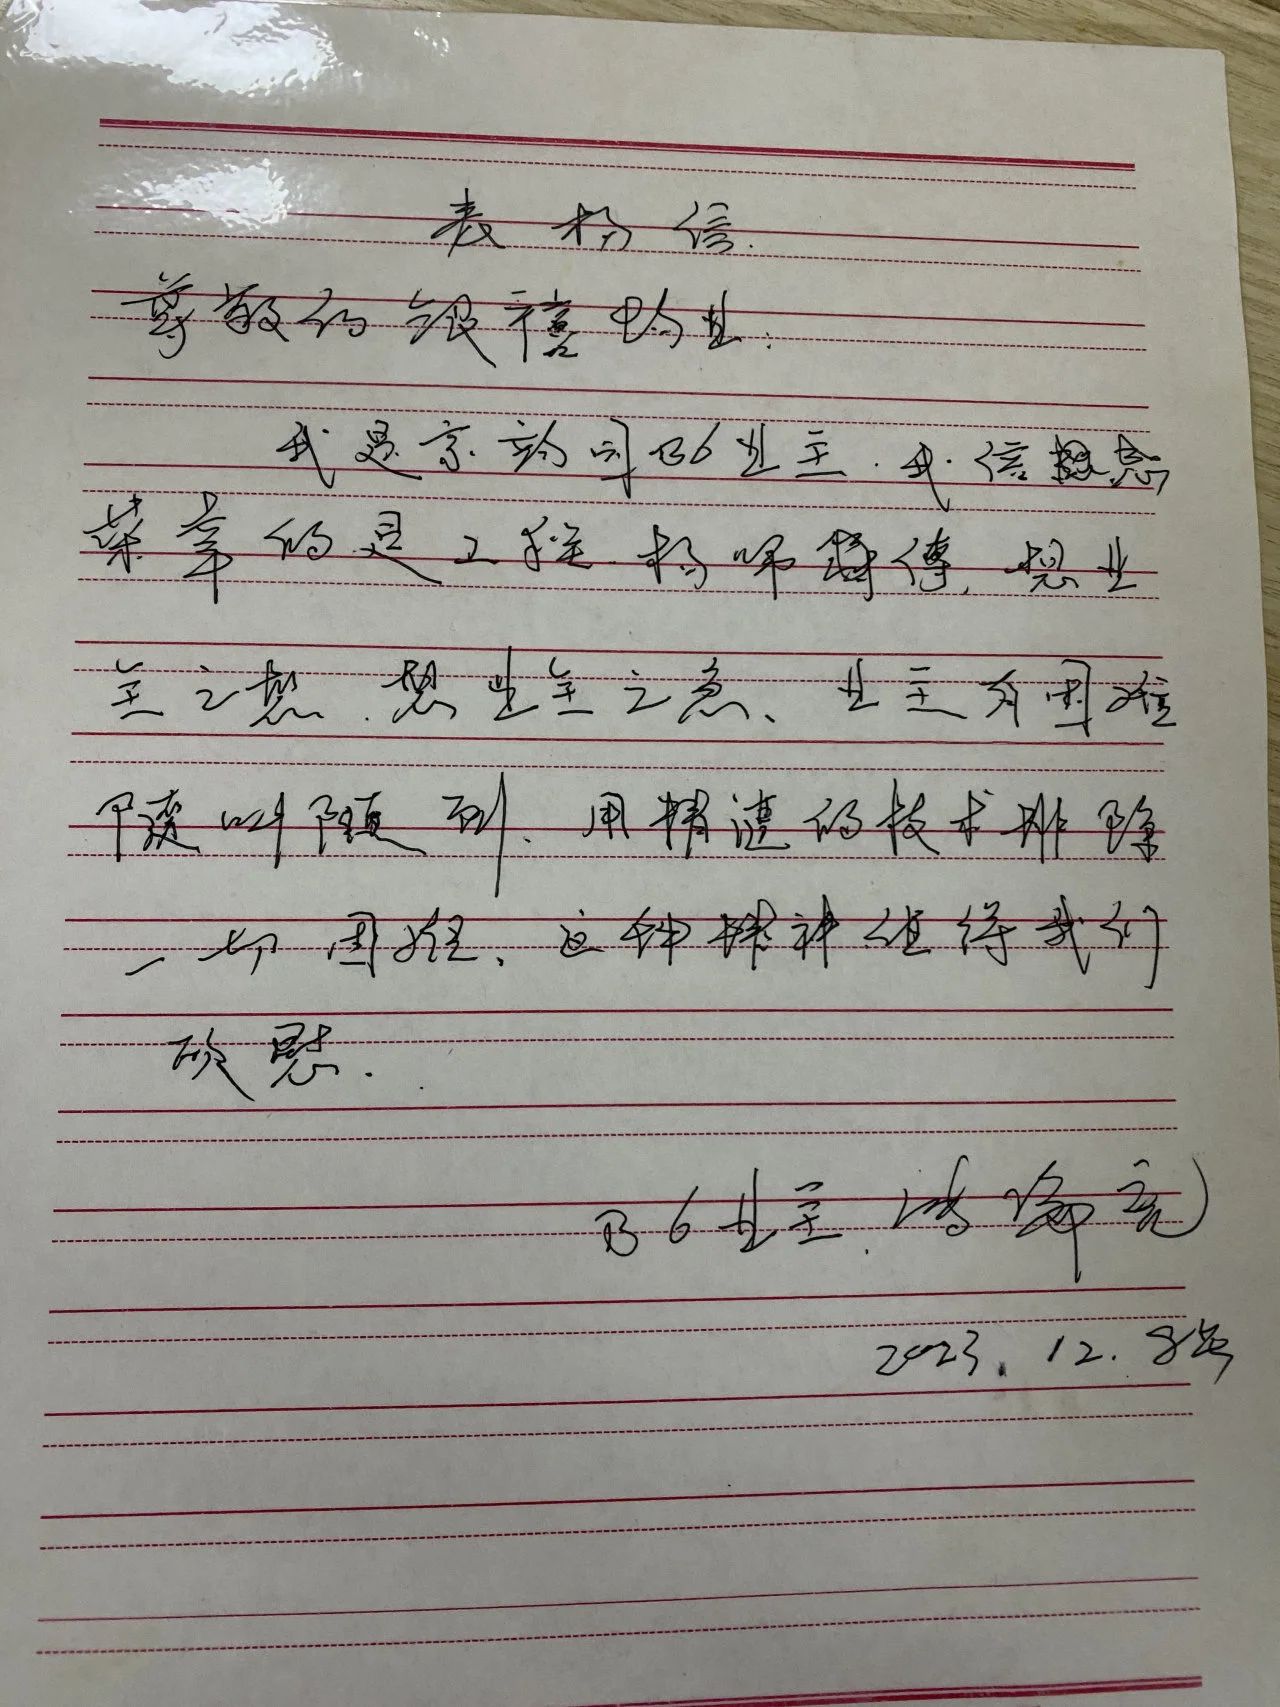 表扬信.
尊敬的银禧物业:
我是京韵阁B6业主.我
的是工程.杨师傅,想业
主之想.想业主之急、业主有困难
随叫随到.用精湛的技术排除
一切困难、这种精神值得我们
欣慰.
B6业主.
2023.12.8号